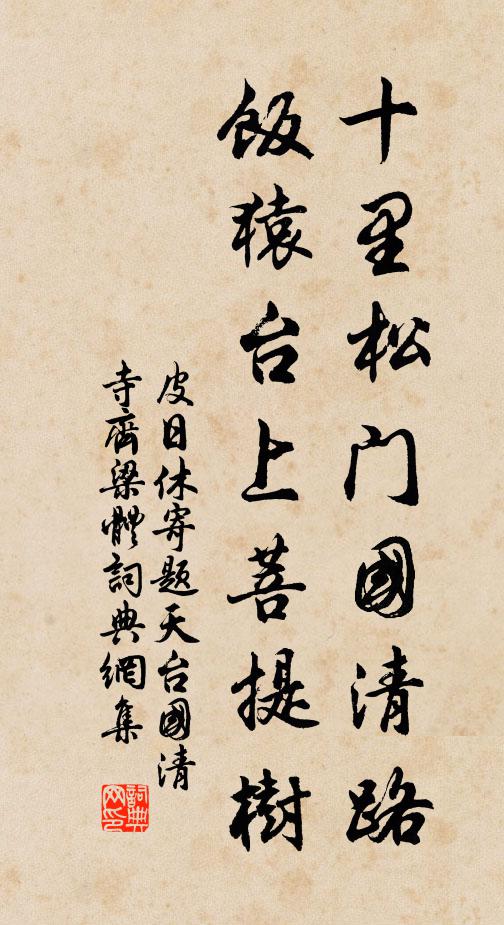 十里松门國清路
飯猿台上菩提樹
皮日休寄題天台國清
寺齊梁體詞典網集
詞典网印